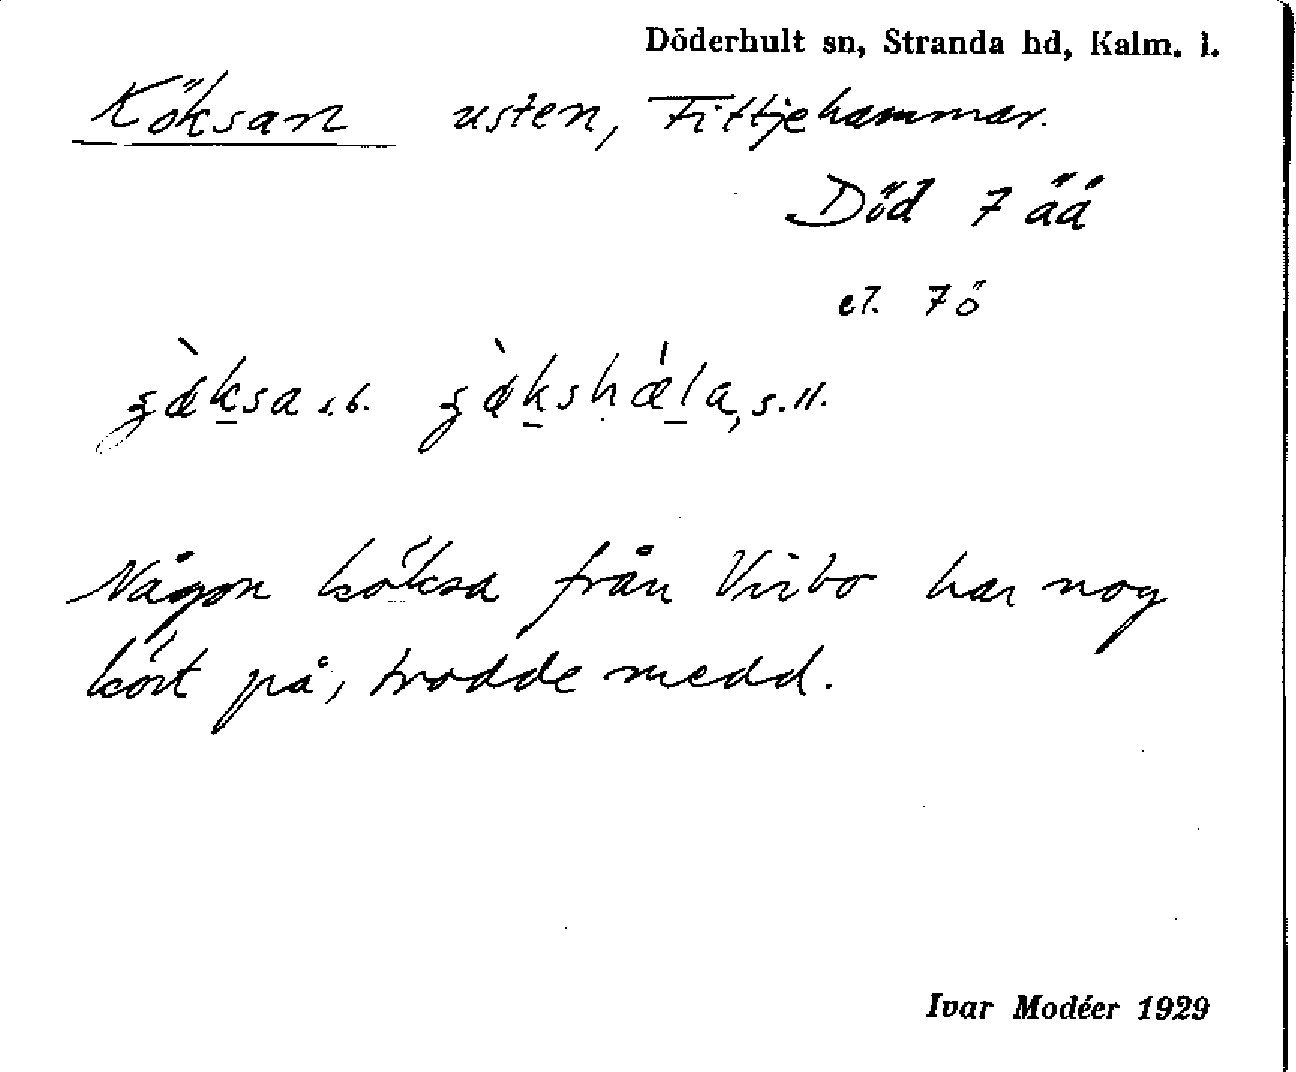 Döderhult sn, Stranda hd, Kalm. l.
Köksan usten, Fittjehammar.
Död 7 åä
el. 7 ö
Någon köksa från Virbo har nog
kört på, trodde medd.
Ivar Modéer 1929